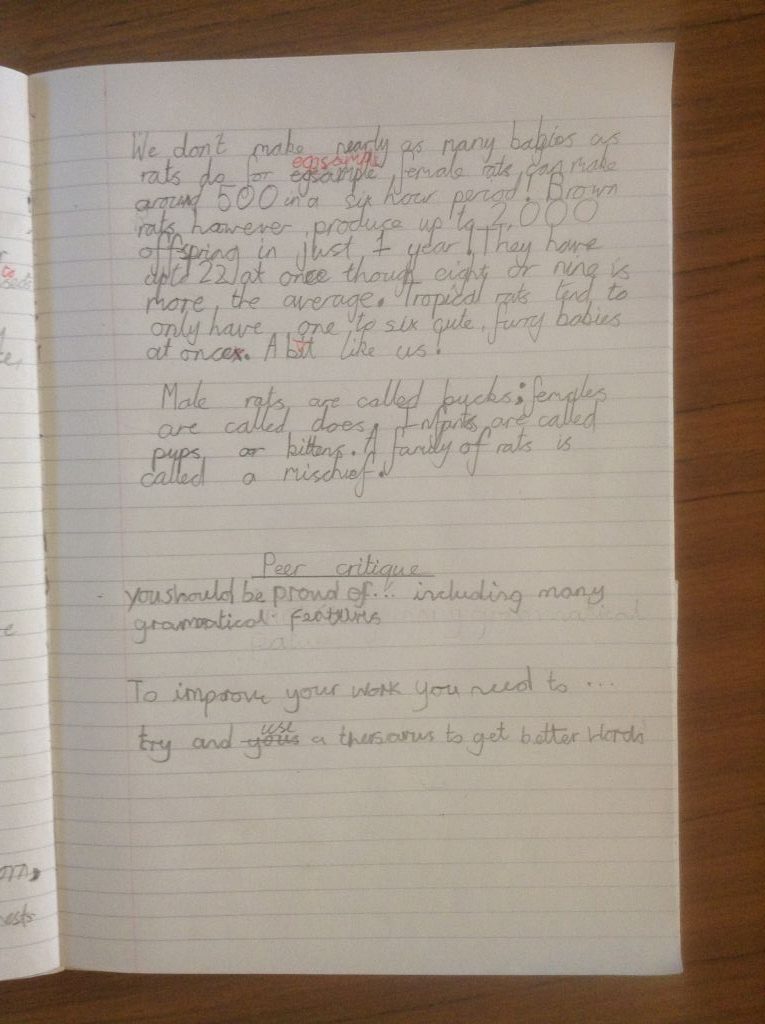 We don't make nearly as many babies as
egsampl
rats do for egsample, female rats can make
around 500 in a six hour period! Brown
rats, however, produce up to 2,000
offspring in just 1 year! They have
upto 22 at once though eight or nine is
more the average. Tropical rats tend to
only have one to six cute, furry babies
at once. A bit like us.
Male rats are called bucks; females
are called does. Infants are called
pups or kittens. A family of rats is
called a mischief.
Peer critique
you should be proud of... including many
gramatical features
To improve your work you need to ...
use
try and yous a thesarus to get better words
ests